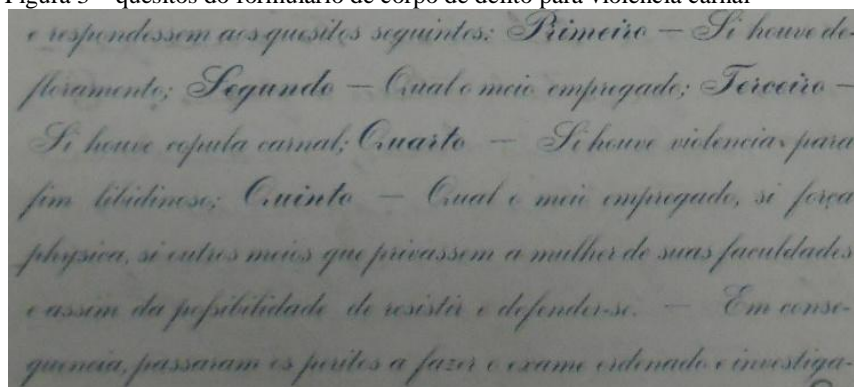 Figura 3 – quesitos do formulário de corpo de delito para violência carnal
e respondessem aos quesitos seguintes: Primeiro — Si houve de-
floramento; Segundo — Qual o meio empregado; Terceiro —
Si houve copula carnal; Quarto — Si houve violencia para
fim libidinoso; Quinto — Qual o meio empregado, si força
physica, si outros meios que privassem a mulher de suas faculdades
e assim da possibilidade de resistir e defender-se. — Em conse-
quencia, passaram os peritos a fazer o exame ordenado e investiga-